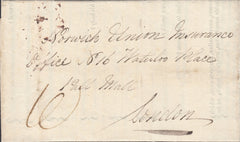 Norwich Union Insurance
Office No 16 Waterloo Place
Pall Mall
London